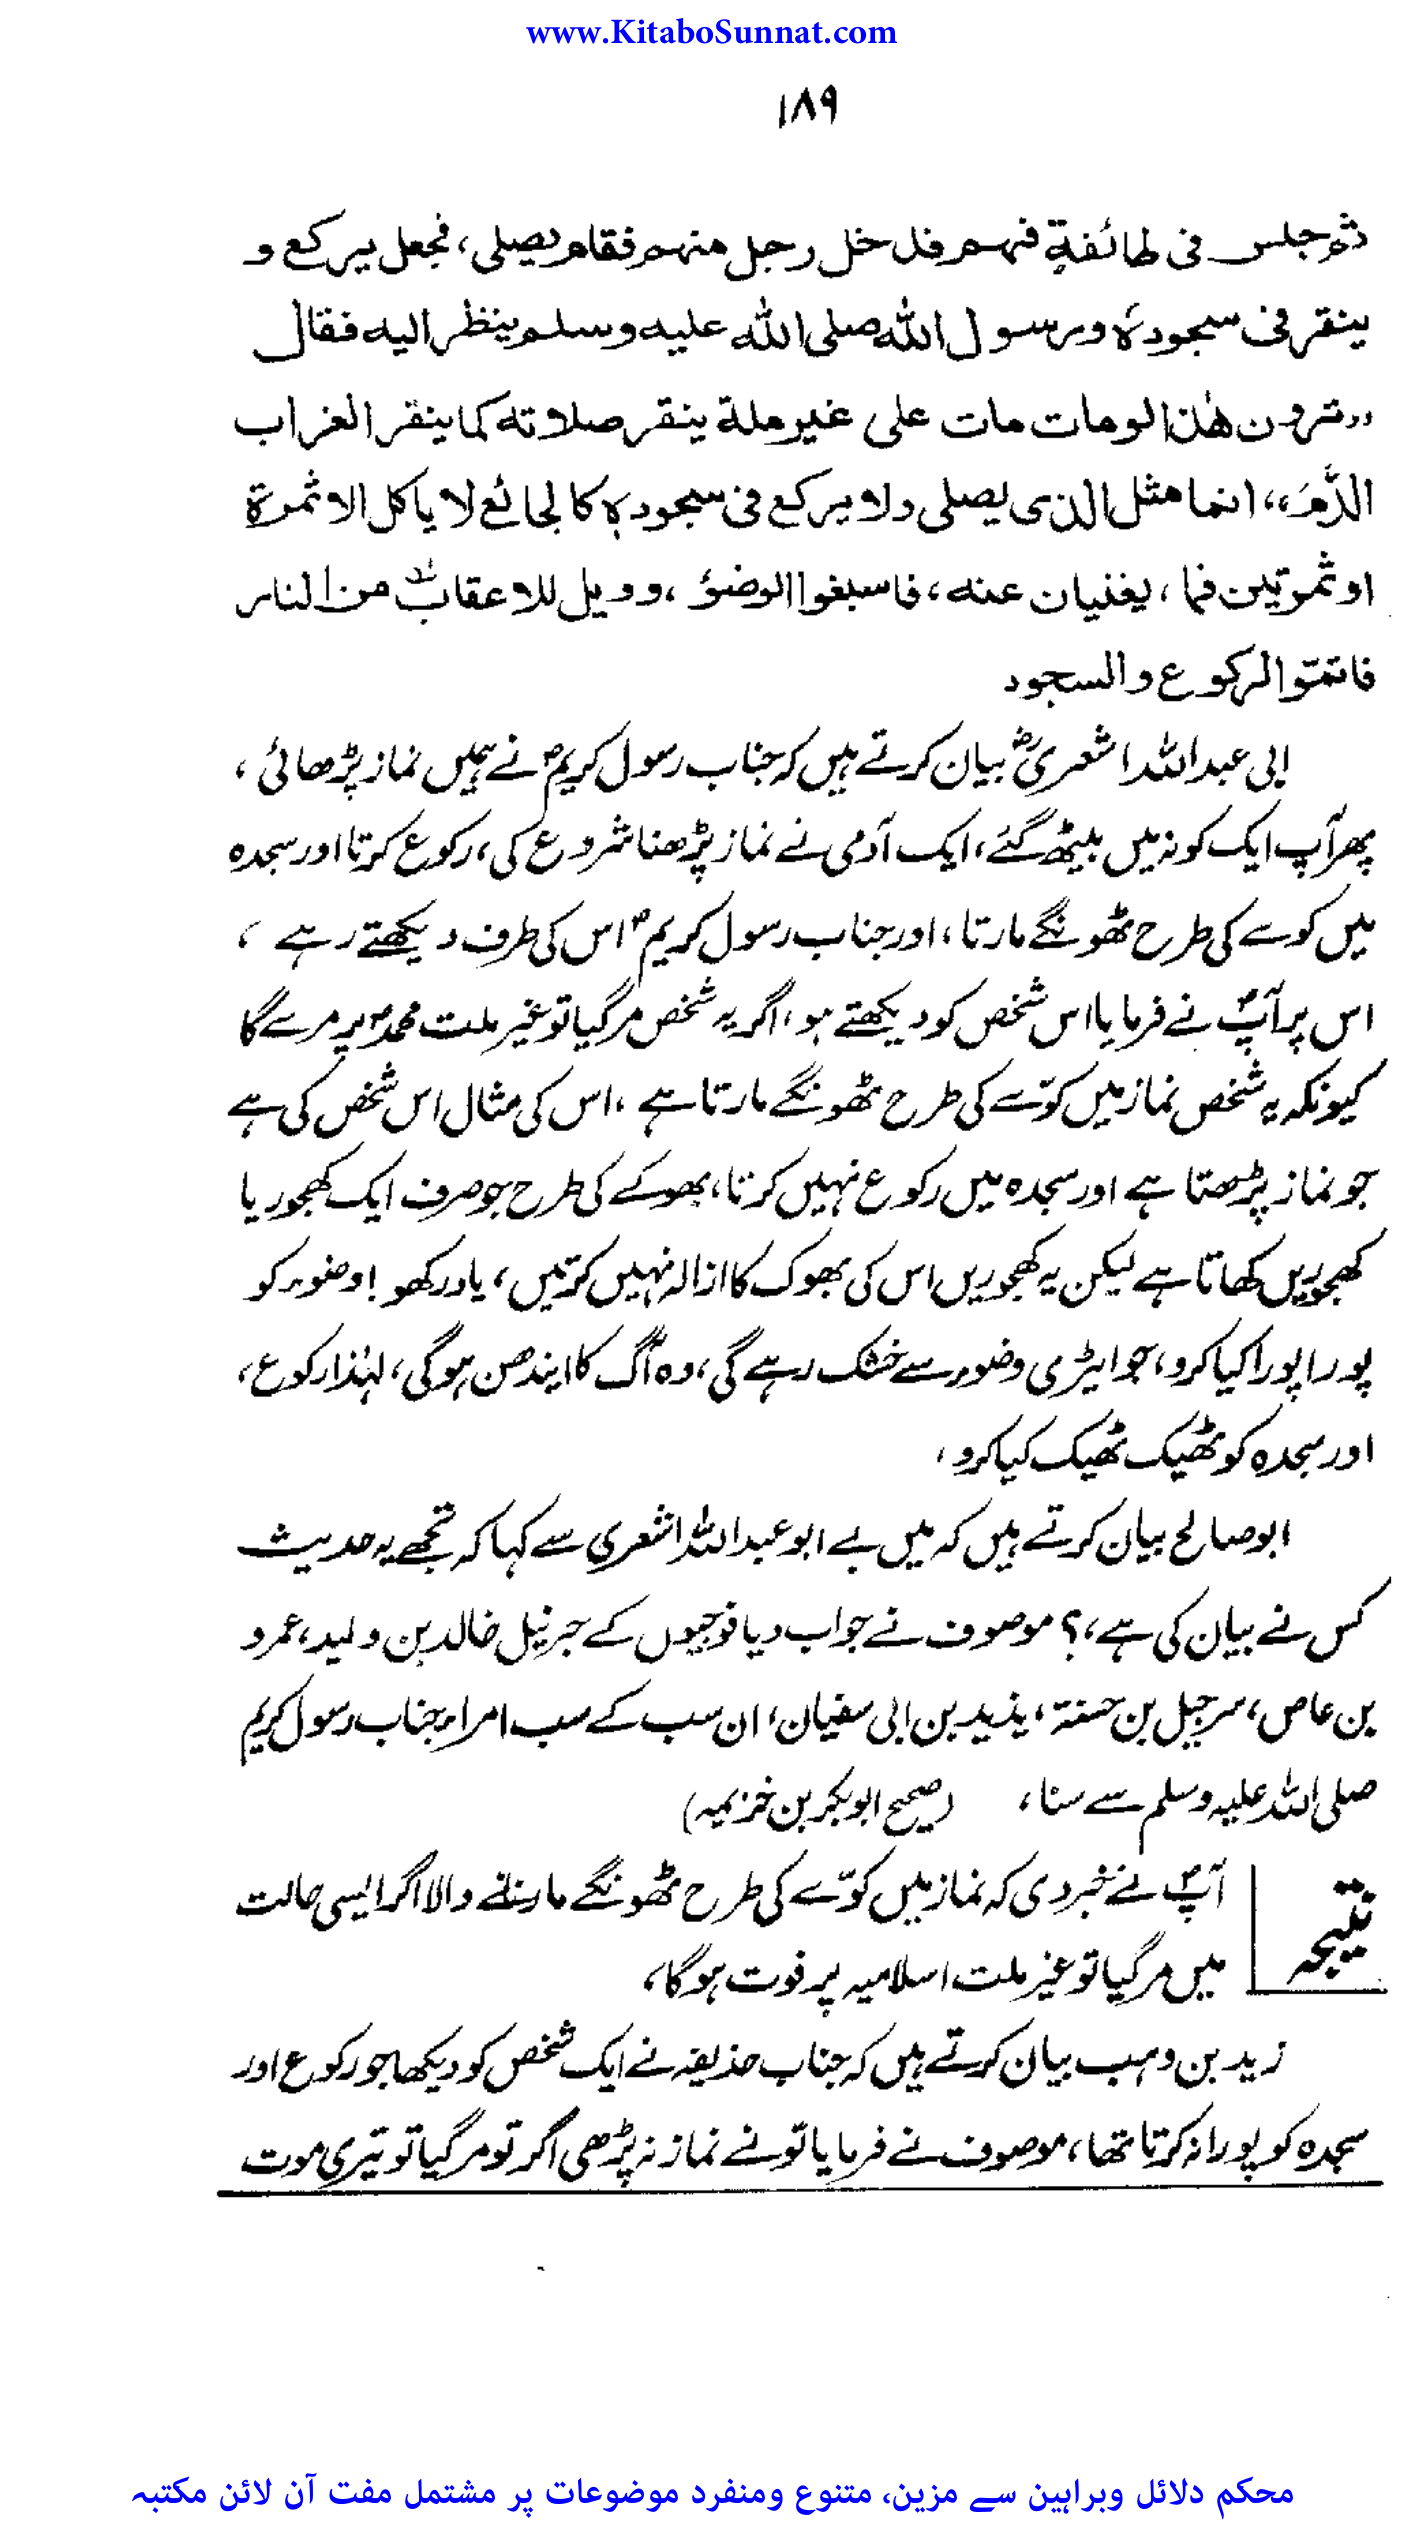 www.KitaboSunnat.com
۱۸۹
ثم جلس فی طائفۃٍ فنھم فدخل رجل منہم فقام یصلی، فجعل یرکع و
ینقر فی سجودہ ورسول اللہ صلی اللہ علیہ وسلم ینظر الیہ فقال
”ترون ھٰذا لومات مات علی غیر ملۃ ینقر صلاتہ کما ینقر الغراب
الدَّمَ“، انما مثل الذی یصلی ولا یرکع فی سجودہٖ کالجائع لا یاکل الا ثمرۃ
او ثمرتین فما، یغنیان عنہ، فاسبغوا الوضوٴ، وویل للاعقاب من النار
فاتمّوا الرکوع والسجود
ابی عبداللہ اشعریؓ بیان کرتے ہیں کہ جناب رسول کریمؐ نے ہمیں نماز پڑھائی ،
پھر آپ ایک کونہ میں بیٹھ گئے، ایک آدمی نے نماز پڑھنا شروع کی، رکوع کرتا اور سجدہ
میں کوے کی طرح ٹھونگے مارتا، اور جناب رسول کریمؐ اس کی طرف دیکھتے رہے ،
اس پر آپؐ نے فرمایا اس شخص کو دیکھتے ہو، اگر یہ شخص مر گیا تو غیر ملت محمدؐ پر مرے گا
کیونکہ یہ شخص نماز میں کوّے کی طرح ٹھونگے مارتا ہے ، اس کی مثال اس شخص کی ہے
جو نماز پڑھتا ہے اور سجدہ میں رکوع نہیں کرتا، بھوکے کی طرح جو صرف ایک کھجور یا
کھجوریں کھاتا ہے لیکن یہ کھجوریں اس کی بھوک کا ازالہ نہیں کرتیں، یاد رکھو! وضوء کو
پورا پورا کیا کرو، جو ایڑی وضوء سے خشک رہے گی، وہ آگ کا ایندھن ہوگی، لہٰذا رکوع،
اور سجدہ کو ٹھیک ٹھیک کیا کرو ،
ابوصالح بیان کرتے ہیں کہ میں ہے ابوعبداللہ اشعری سے کہا کہ تجھے یہ حدیث
کس نے بیان کی ہے،؟ موصوف نے جواب دیا فوجیوں کے جرنیل خالد بن ولید، عمرو
بن عاص، سرجیل بن حسنۃ، یذید بن ابی سفیان، ان سب کے سب امراء جناب رسول کریم
صلی اللہ علیہ وسلم سے سنا، (صحیح ابوبکر بن خزیمہ)
نتیجہ
آپؐ نے خبر دی کہ نماز میں کوّے کی طرح ٹھونگے مارنے والا اگر ایسی حالت
میں مر گیا تو غیر ملت اسلامیہ پر فوت ہوگا،
زید بن وہب بیان کرتے ہیں کہ جناب حذیفہ نے ایک شخص کو دیکھا جو رکوع اور
سجدہ کو پورا نہ کرتا تھا، موصوف نے فرمایا تو نے نماز نہ پڑھی اگر تو مر گیا تو تیری موت
محکم دلائل وبراہین سے مزین، متنوع ومنفرد موضوعات پر مشتمل مفت آن لائن مکتبہ